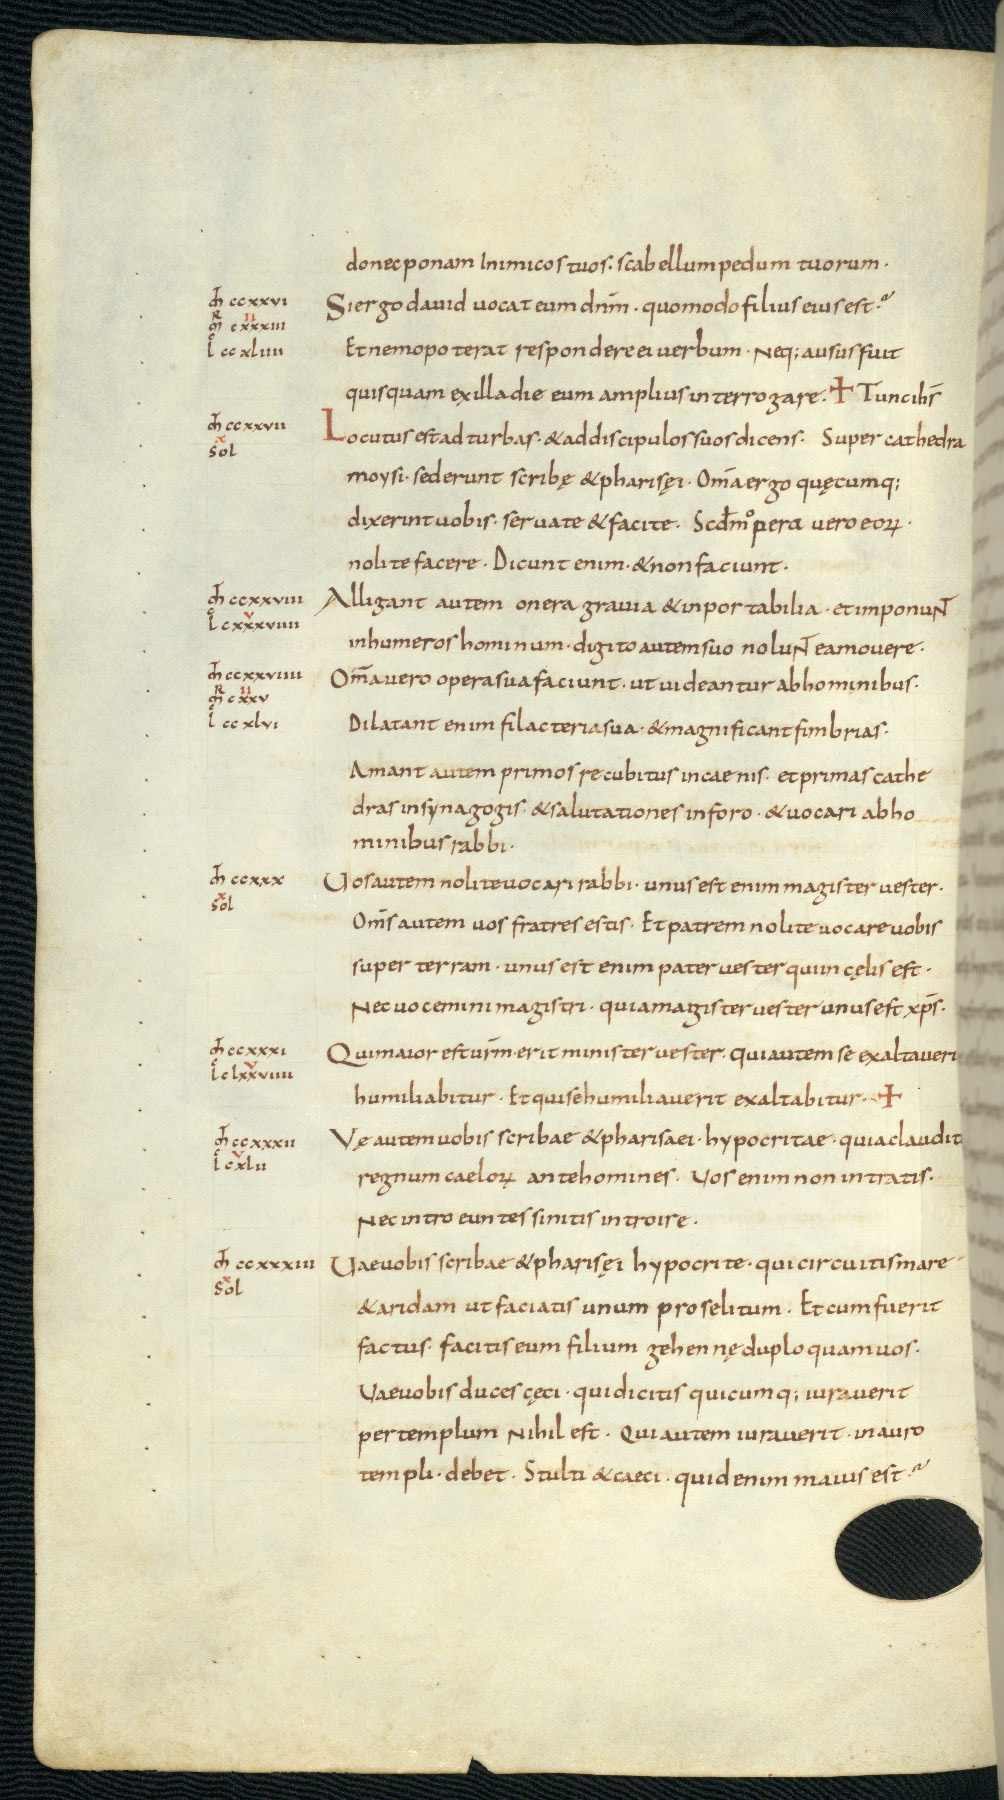 donec ponam Inimicos tuos · scabellum pedum tuorum ·
m̄ ccxxvi
Si ergo dauid uocat eum dnm̄ · quomodo filius eius est ·
mr̄ cxxxiii
ii
l ccxliiii
Et nemo poterat respondere ei uerbum · Neq; ausus fuit
quisquam ex illa die eum amplius interrogare · ✝ Tunc ihs̄
m̄ ccxxvii
Locutus est ad turbas · & ad discipulos suos dicens · Super cathedra
x
sol
moysi · sederunt scribę & pharisęi · Om̄a ergo quęcumq;
dixerint uobis · seruate & facite · Scdm̄ opera uero eoꝝ ·
nolite facere · Dicunt enim · & non faciunt ·
m̄ ccxxviii
Alligant autem onera grauia & inportabilia · et imponuNT
v
l cxxxviiii
in humeros hominum · digito autem suo noluNT ea mouere ·
m̄ ccxxviiii
Om̄a uero opera sua faciunt · ut uideantur ab hominibus ·
mr̄ cxxxv
ii
l ccxlvi
Dilatant enim filacteria sua · & magnificant fimbrias ·
Amant autem primos recubitus in caenis · et primas cathe
dras in synagogis · & salutationes in foro · & uocari ab ho
minibus rabbi ·
m̄ ccxxx
Uos autem nolite uocari rabbi · unus est enim magister uester ·
x
sol
Om̄s autem uos fratres estis · Et patrem nolite uocare uobis
super terram · unus est enim pater uester qui in cęlis est ·
Nec uocemini magistri · quia magister uester unus est xp̄s ·
m̄ ccxxxi
Qui maior est ur̄m · erit minister uester · qui autem se exaltaueri
v
l clxxviiii
humiliabitur · Et qui se humiliauerit exaltabitur · ✝
m̄ ccxxxii
Vę autem uobis scribae & pharisaei · hypocritae · quia claudit
v
l cxlii
regnum caeloꝝ ante homines · Uos enim non intratis ·
Nec introeuntes sinitis introire ·
m̄ ccxxxiii
Uae uobis scribae & pharisęi hypocrite · qui circuitis mare
x
sol
& aridam ut faciatis unum proselitum · Et cum fuerit
factus · facitis eum filium gehennę duplo quam uos ·
Uae uobis duces cęci · qui dicitis quicumq; iurauerit
per templum Nihil est · Qui autem iurauerit · in auro
templi · debet · Stulti & caeci · quid enim maius est ·